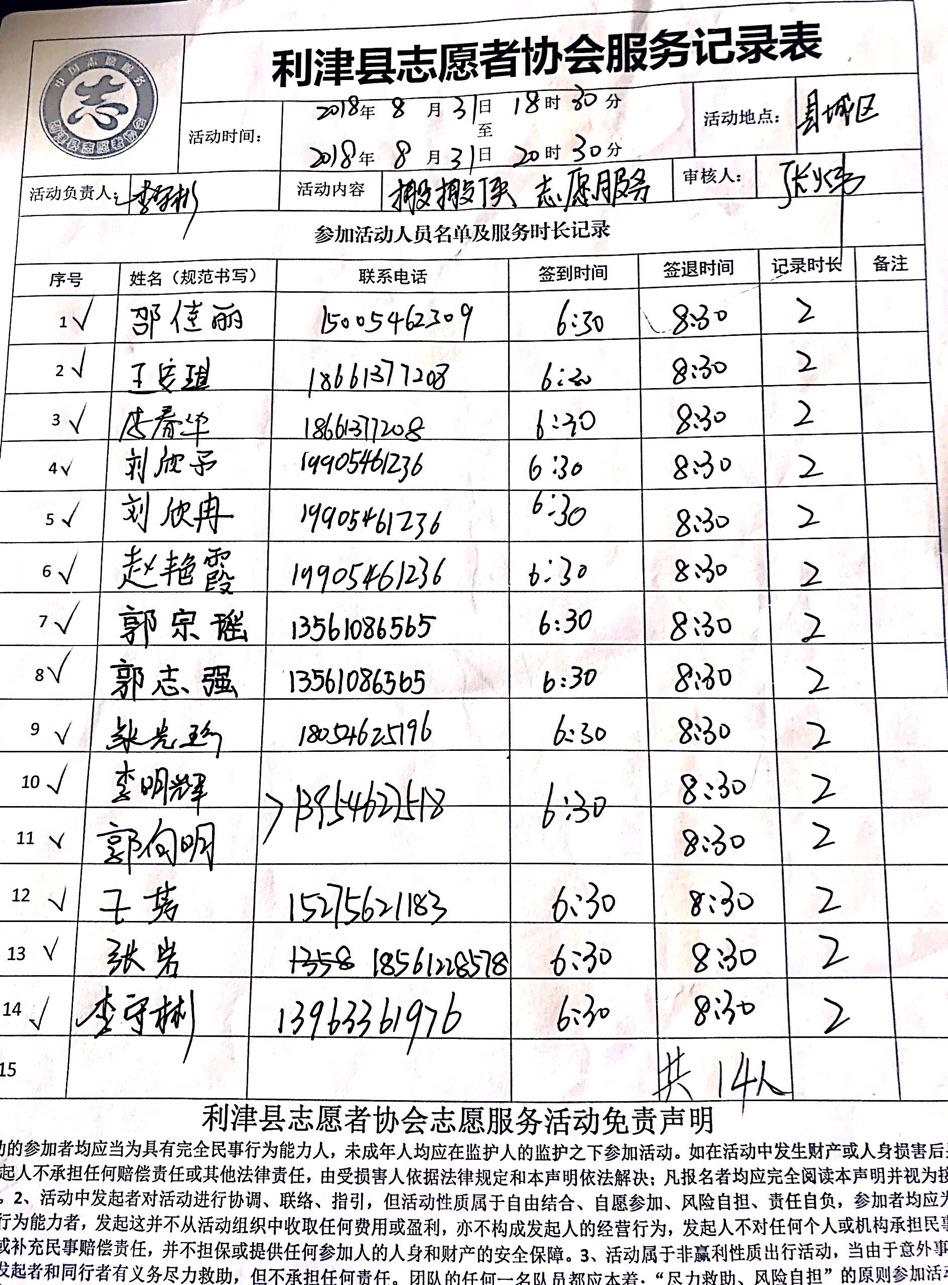 中国志愿服务
志
利津县志愿者协会
利津县志愿者协会服务记录表
活动时间: 2018年 8 月 31日 18时 30分
至
2018年 8 月 31日 20时 30分
活动地点: 县城区
活动负责人: 李守彬 活动内容 搬搬顶 志愿服务 审核人:
参加活动人员名单及服务时长记录
序号 姓名（规范书写） 联系电话 签到时间 签退时间 记录时长 备注
1 √ 邵佳丽 15005462309 6:30 8:30 2
2 √ 18661377208 6:30 8:30 2
3 √ 李春华 18661377208 6:30 8:30 2
4 √ 刘欣予 19905461236 6:30 8:30 2
5 √ 刘欣冉 19905461236 6:30 8:30 2
6 √ 赵艳霞 19905461236 6:30 8:30 2
7 √ 郭宗瑶 13561086565 6:30 8:30 2
8 √ 郭志强 13561086565 6:30 8:30 2
9 √ 18054625196 6:30 8:30 2
10 √ 李明辉 13954622518 6:30 8:30 2
11 √ 郭向明 8:30 2
12 √ 王菁 15275621183 6:30 8:30 2
13 √ 张岩 1358 18561228578 6:30 8:30 2
14 √ 李守彬 13963361976 6:30 8:30 2
15 共 14人
利津县志愿者协会志愿服务活动免责声明
动的参加者均应当为具有完全民事行为能力人，未成年人均应在监护人的监护之下参加活动。如在活动中发生财产或人身损害后
起人不承担任何赔偿责任或其他法律责任，由受损害人依据法律规定和本声明依法解决；凡报名者均应完全阅读本声明并视为接
。2、活动中发起者对活动进行协调、联络、指引，但活动性质属于自由结合、自愿参加、风险自担、责任自负，参加者均应为
行为能力者，发起这并不从活动组织中收取任何费用或盈利，亦不构成发起人的经营行为，发起人不对任何个人或机构承担民事
或补充民事赔偿责任，并不担保或提供任何参加人的人身和财产的安全保障。3、活动属于非赢利性质出行活动，当由于意外事
发起者和同行者有义务尽力救助，但不承担任何责任。团队的任何一名队员都应本着：“尽力救助、风险自担”的原则参加活